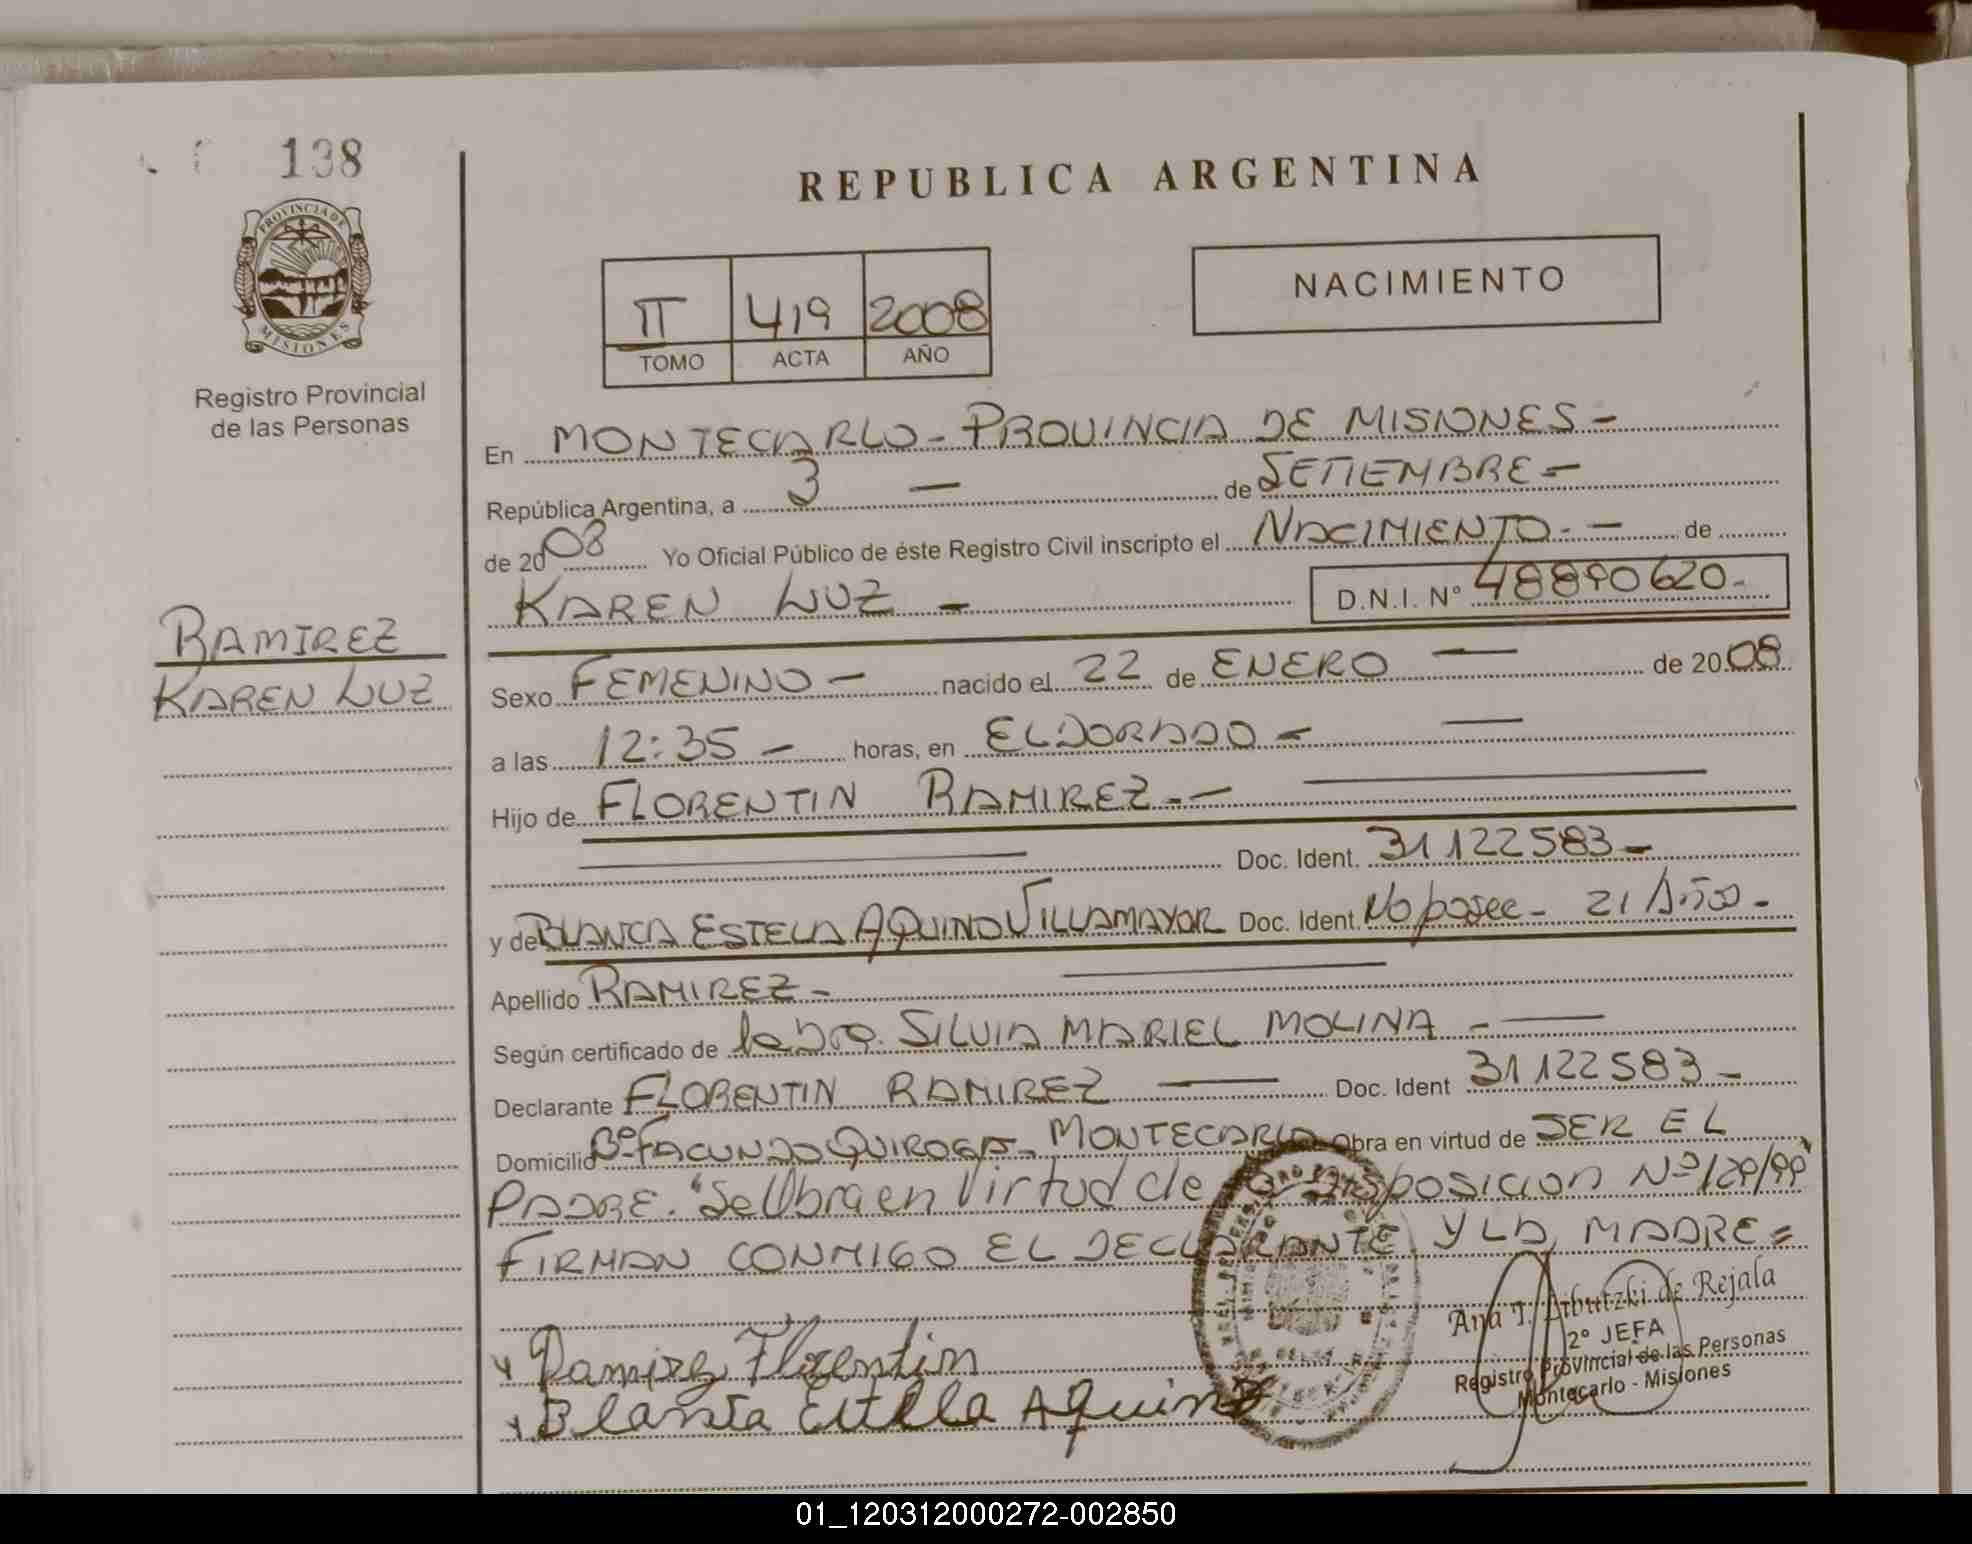 138
PROVINCIA DE
MISIONES
Registro Provincial
de las Personas
RAMIREZ
KAREN LUZ
REPUBLICA ARGENTINA
II 419 2008
TOMO ACTA AÑO
NACIMIENTO
En MONTECARLO - PROVINCIA DE MISIONES -
República Argentina, a 3 — de SETIEMBRE -
de 2008 Yo Oficial Público de éste Registro Civil inscripto el NACIMIENTO. - de
KAREN LUZ - D.N.I. N° 48890620-
Sexo FEMENINO - nacido el 22 de ENERO — de 2008
a las 12:35 - horas, en ELDORADO -
Hijo de FLORENTIN RAMIREZ. -
Doc. Ident. 31122583 -
y de BLANCA ESTELA AQUINO VILLAMAYOR Doc. Ident. No posee - 21 Años -
Apellido RAMIREZ -
Según certificado de la Dra. SILVIA MARIEL MOLINA -
Declarante FLORENTIN RAMIREZ — Doc. Ident 31122583 -
Domicilio Bº FACUNDO QUIROGA - MONTECARLO Obra en virtud de SER EL
PADRE. "Se Obra en Virtud de Disposicion Nº 129/99"
FIRMAN CONMIGO EL DECLARANTE Y LA MADRE =
Ramirez Florentin
Blanca Estela Aquino
Ana T. de Rejala
2° JEFA
Registro Provincial de las Personas
Montecarlo - Misiones
01_120312000272-002850